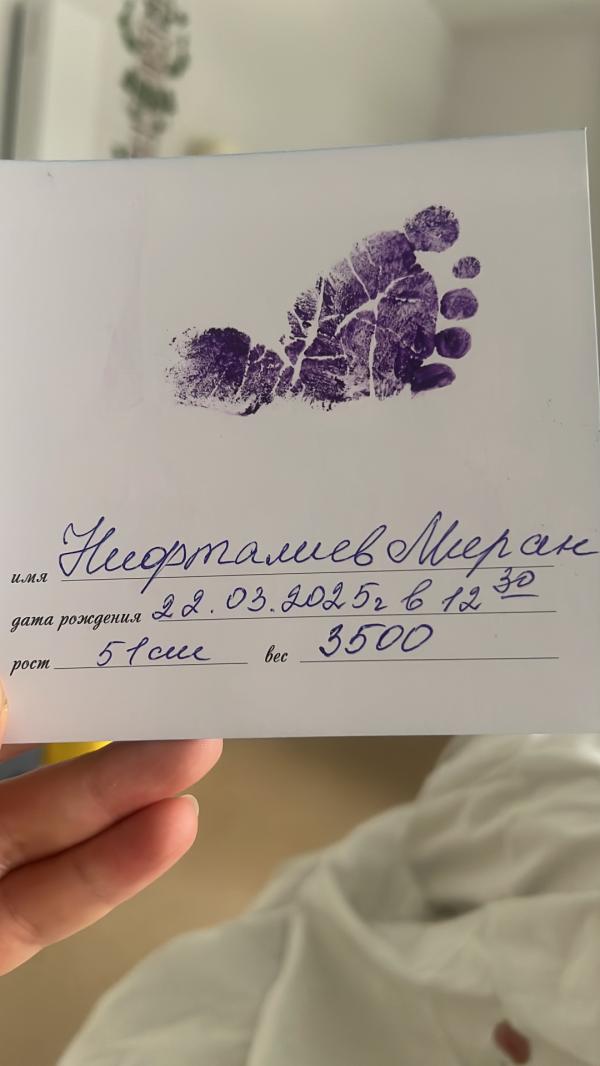 имя Нифталиев Миран
дата рождения 22.03.2025г в 12 30
рост 51 см вес 3500